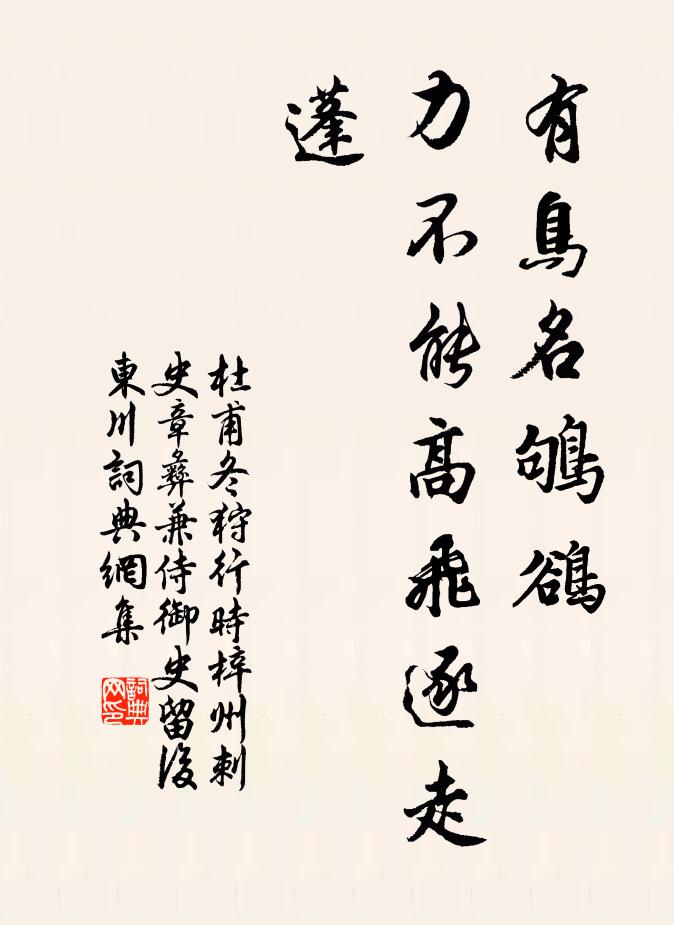 有鳥名鴝鵒
力不能高飛逐走
蓬
杜甫冬狩行時梓州刺
史章彝兼侍御史留後
東川詞典網集
詞典网印